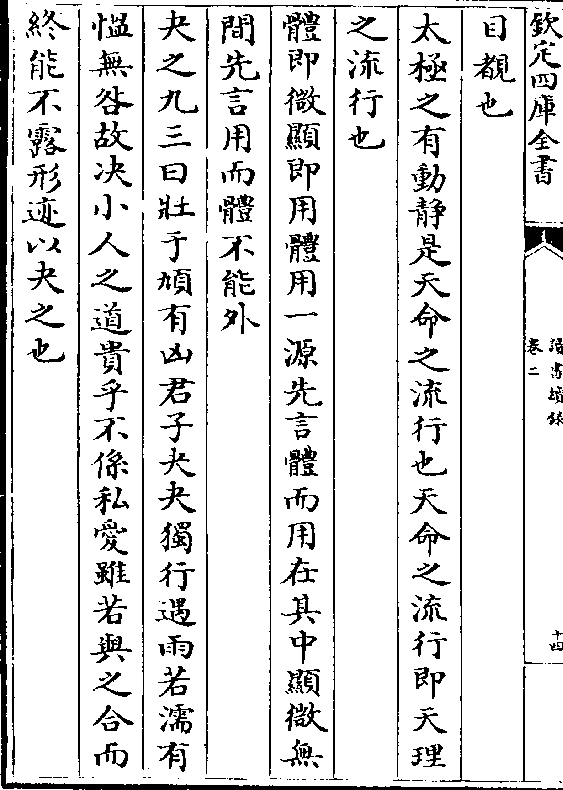 欽定四庫全書
讀書續録
卷二
十四
目覩也
太極之有動靜是天命之流行也天命之流行即天理
之流行也
體即微顯即用體用一源先言體而用在其中顯微無
間先言用而體不能外
夬之九三曰壯于頄有凶君子夬夬獨行遇雨若濡有
愠無咎故决小人之道貴乎不係私愛雖若與之合而
終能不露形迹以夬之也